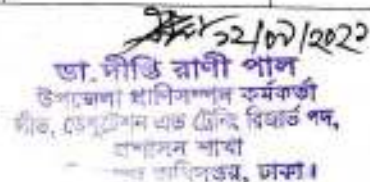 ২২/০৯/২০২২
ডা. দীপ্তি রাণী পাল
উপজেলা প্রাণিসম্পদ কর্মকর্তা
লীভ, ডেপুটেশন এন্ড ট্রেনিং রিজার্ভ পদ,
প্রশাসন শাখা
অধিদপ্তর, ঢাকা।